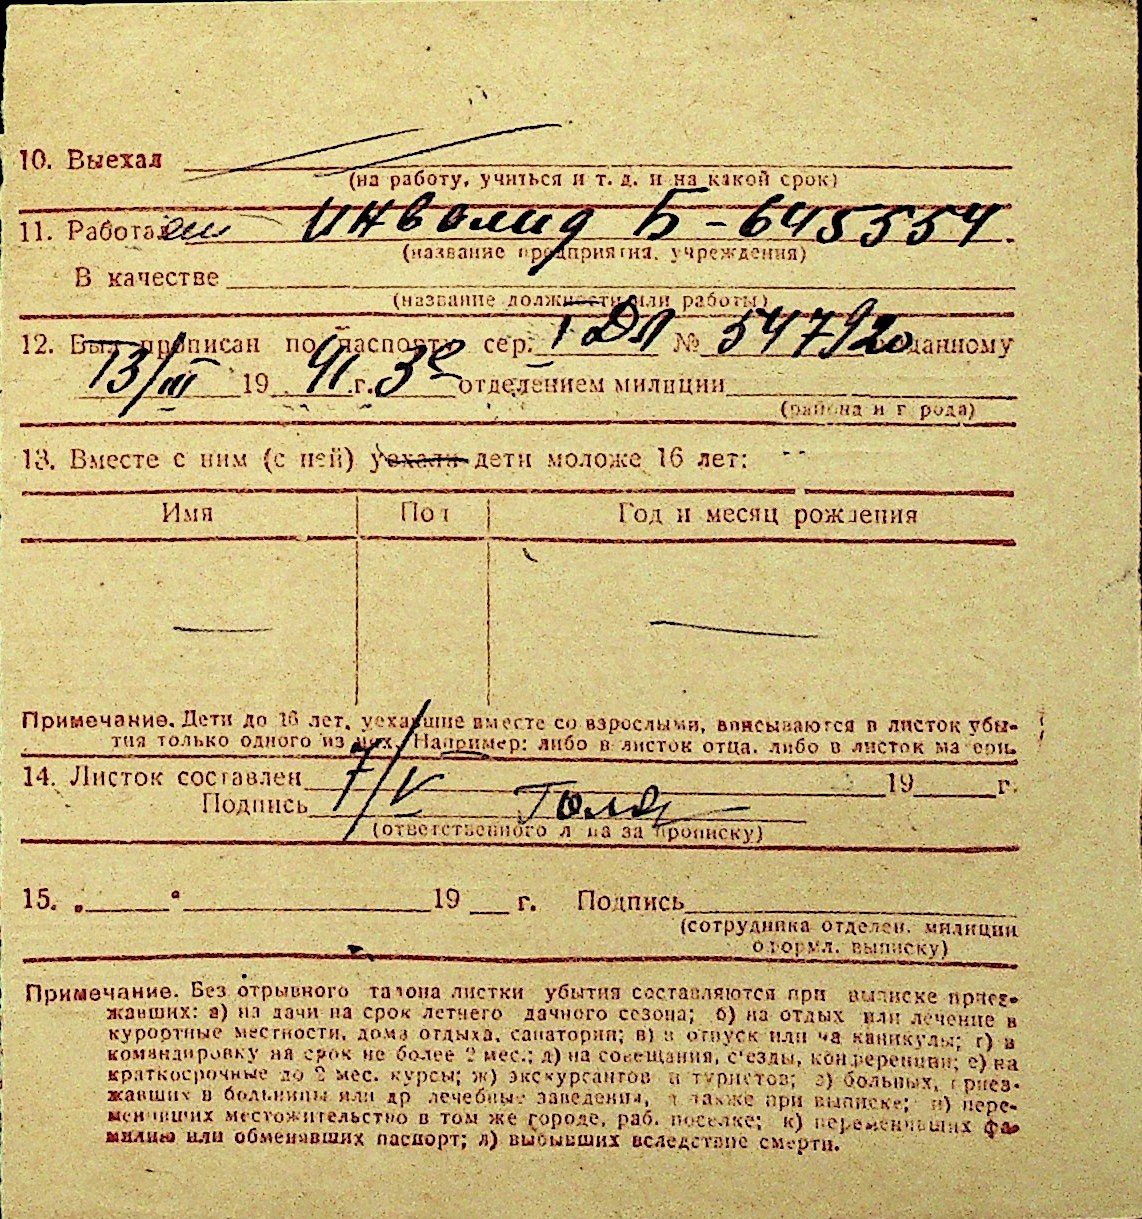 10. Выехал
(на работу, учиться и т. д. и на какой срок)
11. Работа инвалид Б-645554
(название предприятия, учреждения)
В качестве
(название должности или работы)
12. Был прописан по паспорту сер. I ДЛ № 547920 выданному
13/III 1941 г. 3е отделением милиции
(района и города)
13. Вместе с ним (с ней) уехали дети моложе 16 лет:
Имя Пол Год и месяц рождения
Примечание. Дети до 16 лет, уехавшие вместе со взрослыми, вписываются в листок убы-
тия только одного из них. Например: либо в листок отца, либо в листок матери.
14. Листок составлен 7/V 19 г.
Подпись
(ответственного лица за прописку)
15. „ “ 19 г. Подпись
(сотрудника отделен. милиции
оформл. выписку)
Примечание. Без отрывного талона листки убытия составляются при выписке приез-
жавших: а) на дачи на срок летнего дачного сезона; б) на отдых или лечение в
курортные местности, дома отдыха, санатории; в) в отпуск или на каникулы; г) в
командировку на срок не более 2 мес.; д) на совещания, с'езды, конференции; е) на
краткосрочные до 2 мес. курсы; ж) экскурсантов и туристов; з) больных, приез-
жавших в больницы или др лечебные заведения, а также при выписке; и) пере-
менивших местожительство в том же городе, раб. поселке; к) переменивших фа-
милию или обменявших паспорт; л) выбывших вследствие смерти.